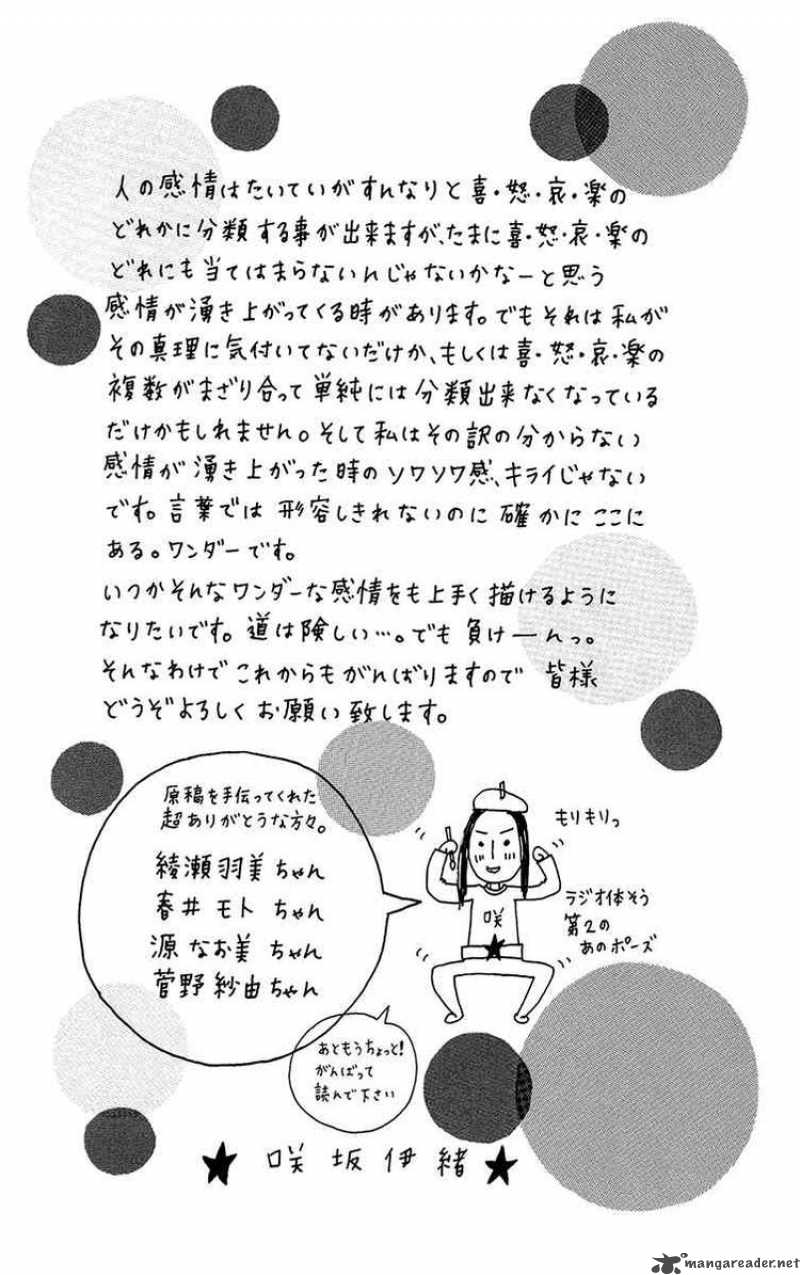 人の感情はたいていがすんなりと喜・怒・哀・楽の
どれかに分類する事が出来ますが、たまに喜・怒・哀・楽の
どれにも当てはまらないんじゃないかなーと思う
感情が湧き上がってくる時があります。でもそれは私が
その真理に気付いてないだけか、もしくは喜・怒・哀・楽の
複数がまざり合って単純には分類出来なくなっている
だけかもしれません。そして私はその訳の分からない
感情が湧き上がった時のソワソワ感、キライじゃない
です。言葉では形容しきれないのに確かにここに
ある。ワンダーです。
いつかそんなワンダーな感情をも上手く描けるように
なりたいです。道は険しい…。でも負けーんっ。
そんなわけでこれからもがんばりますので皆様
どうぞよろしくお願い致します。
原稿を手伝ってくれた
超ありがとうな方々。
綾瀬羽美ちゃん
春井モトちゃん
源なお美ちゃん
菅野紗由ちゃん
もりもりっ
咲
ラジオ体そう
第2の
あのポーズ
あともうちょっと!
がんばって
読んで下さい
★咲坂伊緒★
mangareader.net